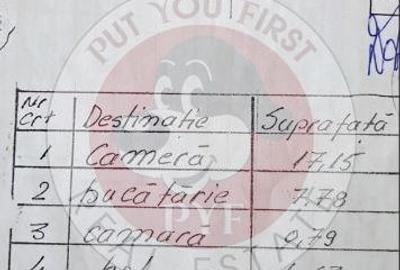 PUT YOU FIRST
Nr Crt Destinatie Suprafată
1 Cameră 17,15
2 bucătărie 7,78
3 camară 0,79
PYF
REAL ESTATE